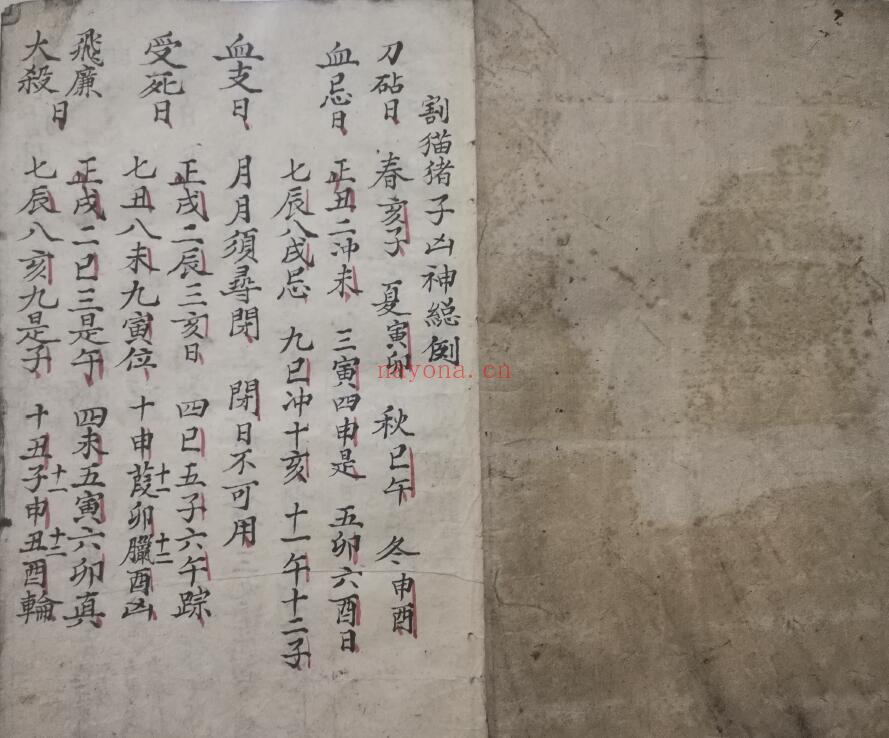 割猫猪子凶神總例
刀砧日 春亥子 夏寅卯 秋巳午 冬申酉
血忌日 正丑二冲未 三寅四申是 五卯六酉日
七辰八戌忌 九巳冲十亥 十一午十二子
血支日 月月須尋閉 閉日不可用
受死日 正戌二辰三亥日 四巳五子六午踪
七丑八未九寅位 十申葭十一卯臘十二酉凶
飛廉 正戌二巳三是午 四未五寅六卯真
大殺日 七辰八亥九是子 十丑子十一申丑十二酉輪
nayona.cn